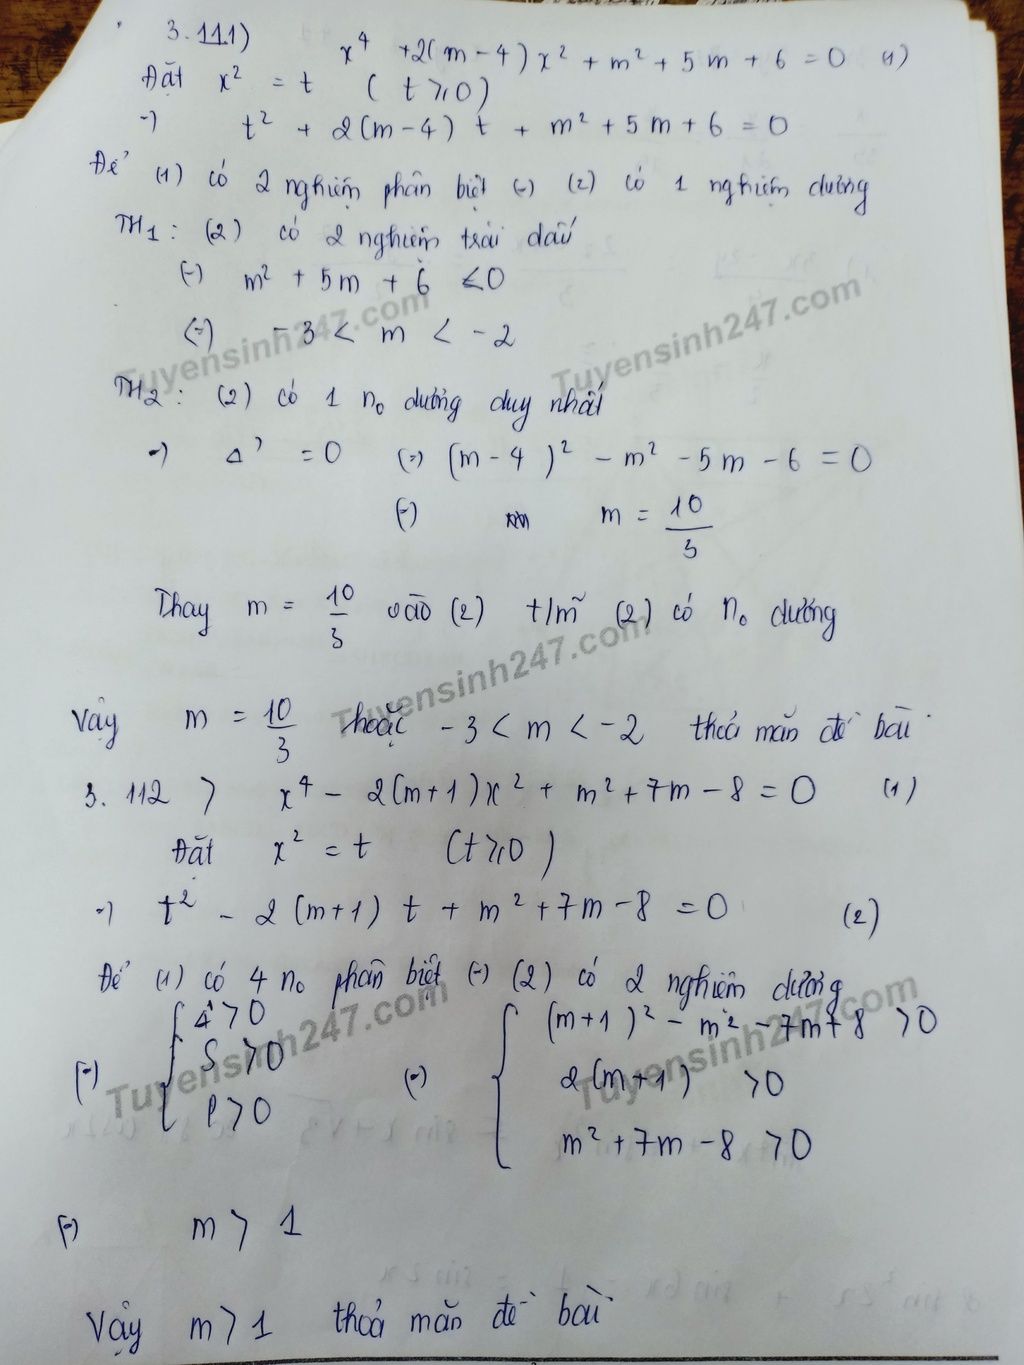 3.111) x⁴ + 2(m - 4)x² + m² + 5m + 6 = 0 (1)
Đặt x² = t (t ≥ 0)
=> t² + 2(m - 4)t + m² + 5m + 6 = 0
Để (1) có 2 nghiệm phân biệt (=) (2) có 1 nghiệm dương
TH1: (2) có 2 nghiệm trái dấu
(=) m² + 5m + 6 < 0
(=) -3 < m < -2
TH2: (2) có 1 n₀ dương duy nhất
=> Δ' = 0 (=) (m - 4)² - m² - 5m - 6 = 0
(=) m = 10/3
Thay m = 10/3 vào (2) t/mã (2) có n₀ dương
Vậy m = 10/3 hoặc -3 < m < -2 thoả mãn đề bài
3.112) x⁴ - 2(m+1)x² + m² + 7m - 8 = 0 (1)
Đặt x² = t (t ≥ 0)
=> t² - 2(m+1)t + m² + 7m - 8 = 0 (2)
Để (1) có 4 n₀ phân biệt (=) (2) có 2 nghiệm dương
Δ' > 0 (m+1)² - m² - 7m + 8 > 0
(=) S > 0 (=) 2(m+1) > 0
P > 0 m² + 7m - 8 > 0
(=) m > 1
Vậy m > 1 thoả mãn đề bài
Tuyensinh247.com
Tuyensinh247.com
Tuyensinh247.com
Tuyensinh247.com
Tuyensinh247.com